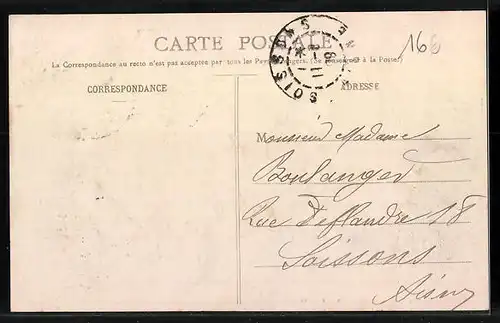 CARTE POSTALE
La Correspondance au recto n'est pas acceptée par tous les Pays étrangers. (Se renseigner à la Poste)
CORRESPONDANCE
ADRESSE
SOISSONS
166
Monsieur Madame
Boulanger
Rue Deflandre 18
Soissons
Aisne